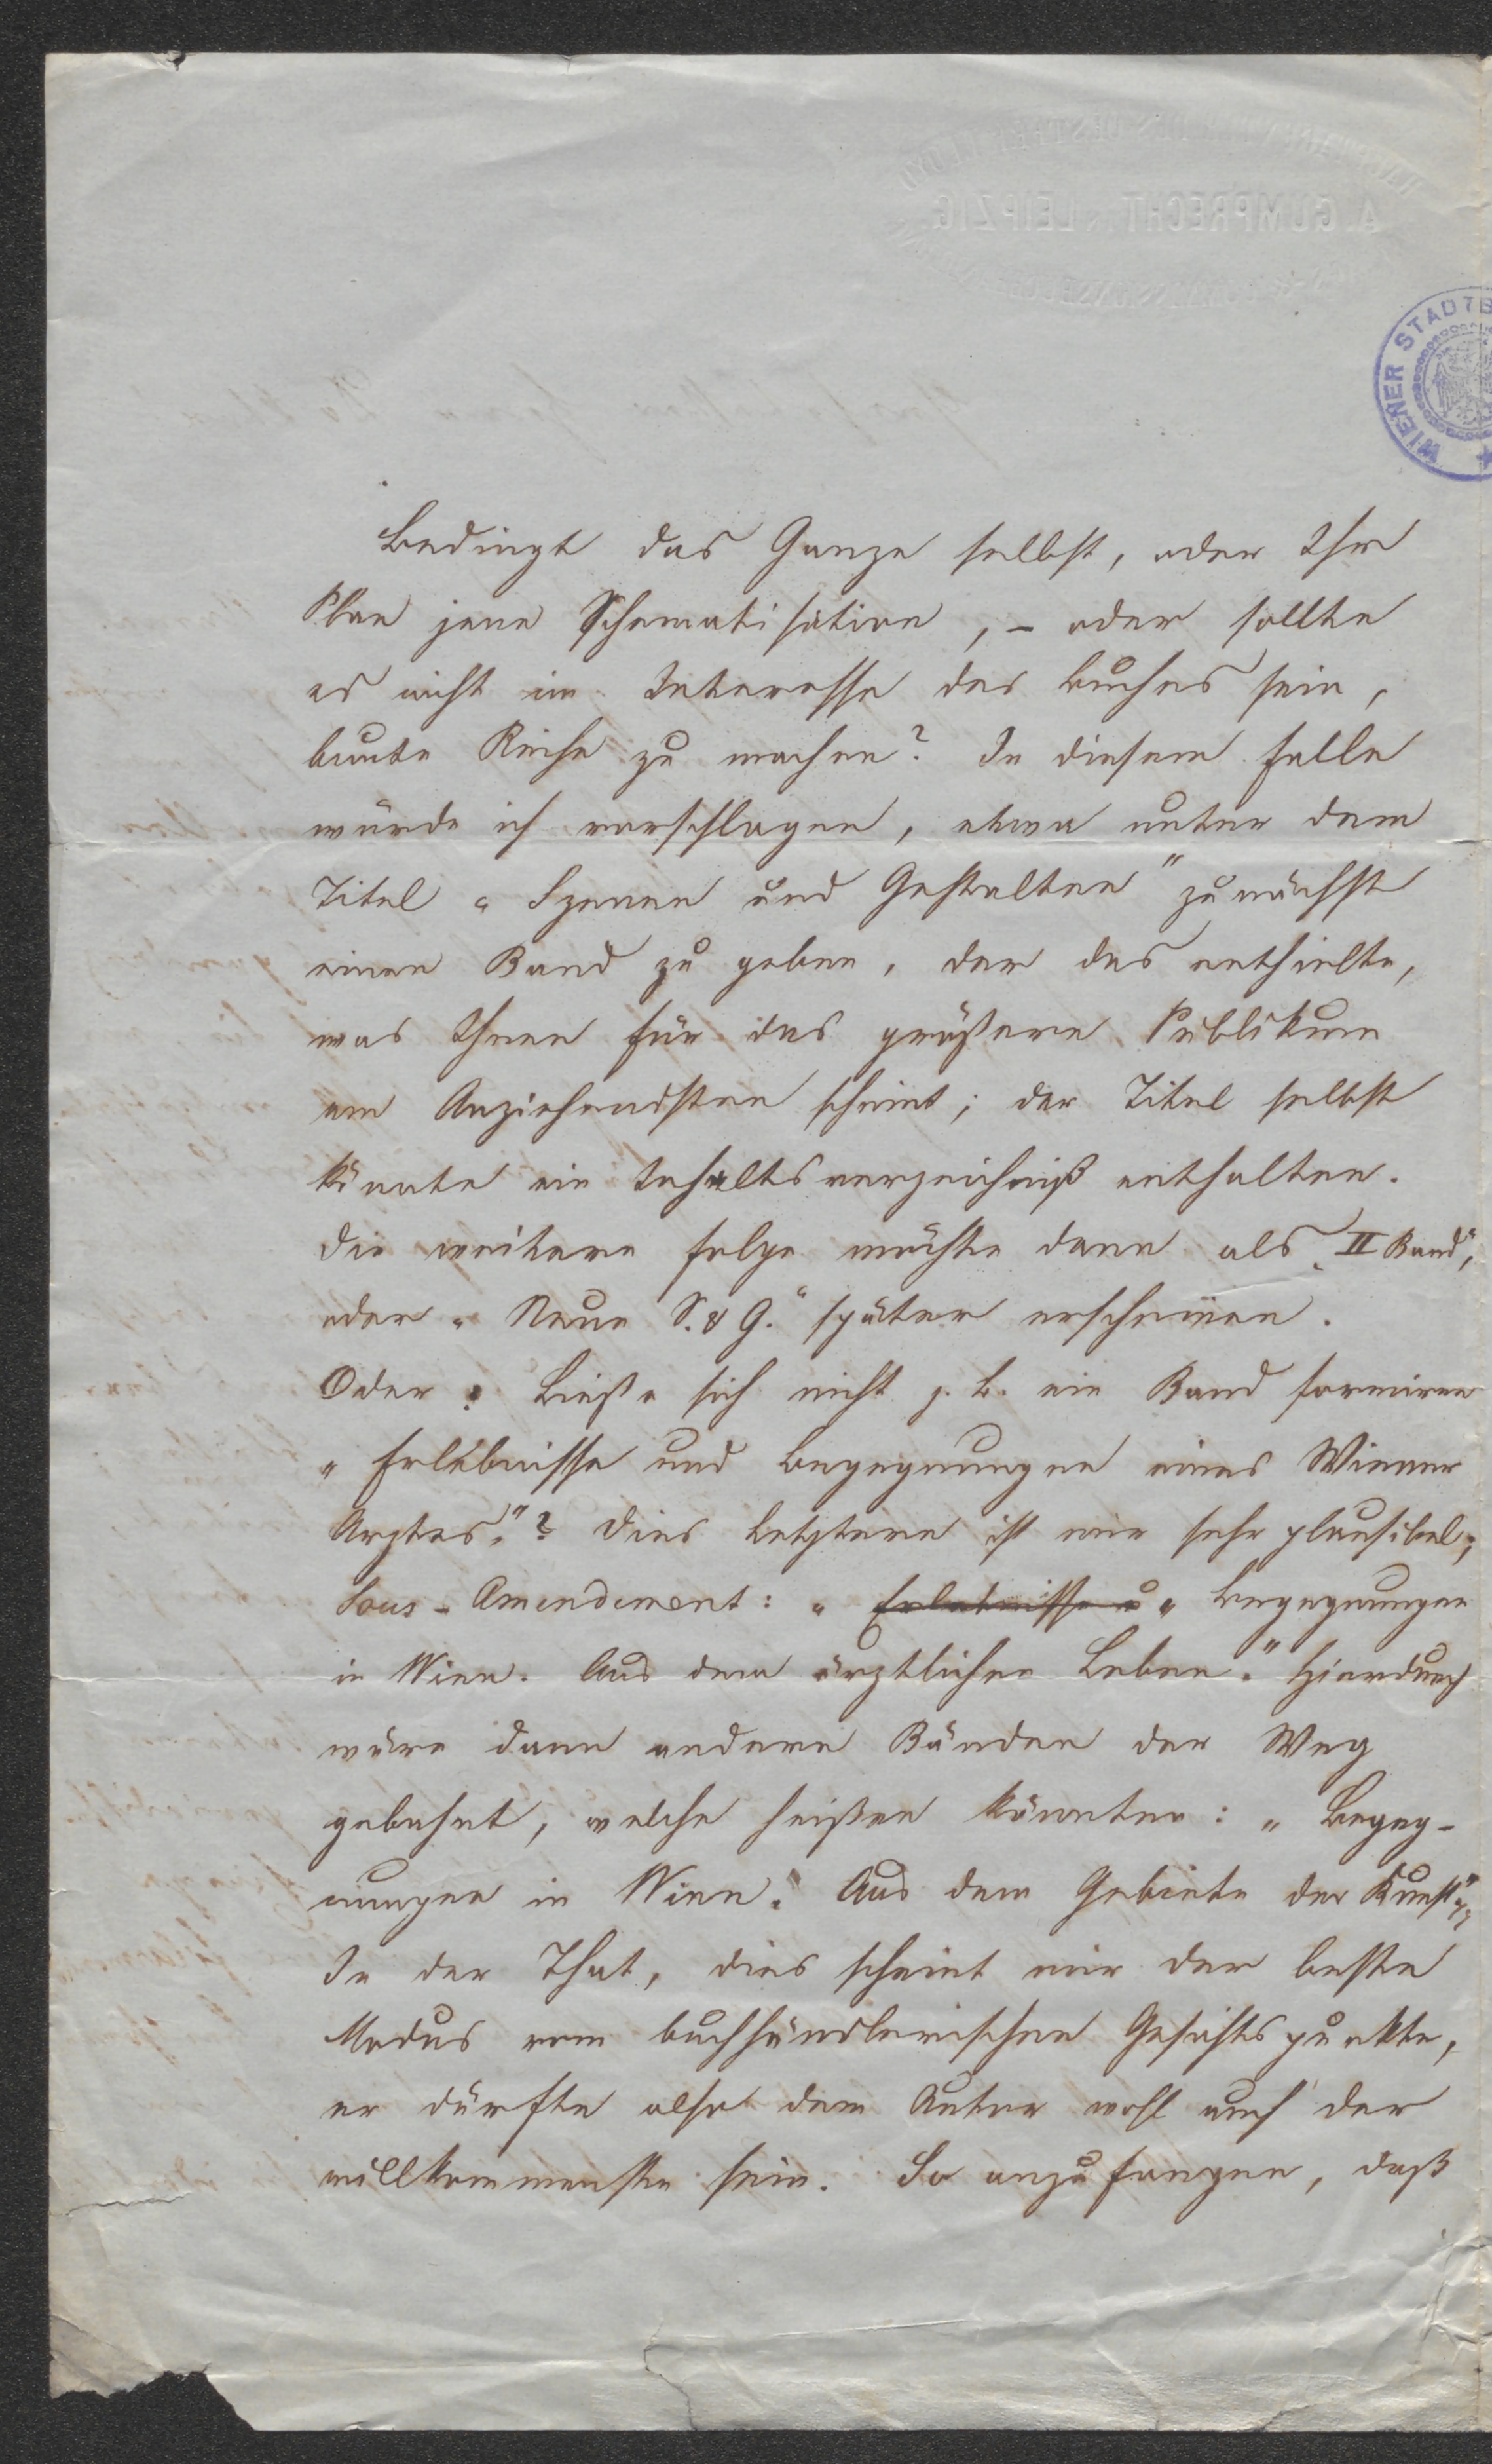 A. GUMPRECHT, LEIPZIG
WIENER STADTB
Bedingt das Ganze selbst, oder Ihr
Plan jene Schematisation, – oder sollte
es nicht im Interesse des Buches sein,
bunte Reihe zu machen? In diesem Falle
würde ich vorschlagen, etwa unter dem
Titel „Szenen und Gestalten" zunächst
einen Band zu geben, der das enthielte,
was Ihnen für das größere Publikum
am Anziehendsten scheint; der Titel selbst
könnte ein Inhaltsverzeichniß enthalten.
Die weitere Folge möchte dann als „II Band",
oder „Neue S. & G." später erscheinen.
Oder: Ließe sich nicht z. B. ein Band formiren
„Erlebnisse und Begegnungen eines Wiener
Arztes."? Dies Letztere ist mir sehr plausibel;
Sous-Amendement: „Erlebnisse u „Begegnungen
in Wien. Aus dem ärztlichen Leben." Hierdurch
wäre dann andern Bänden der Weg
gebahnt, welche heißen könnten: „Begeg-
nungen in Wien. Aus dem Gebiete der Kunst"
In der That, dies scheint mir der beste
Modus vom buchhändlerischen Gesichtspunkte,
er dürfte also dem Autor wohl auch der
willkommenste sein. So anzufangen, daß